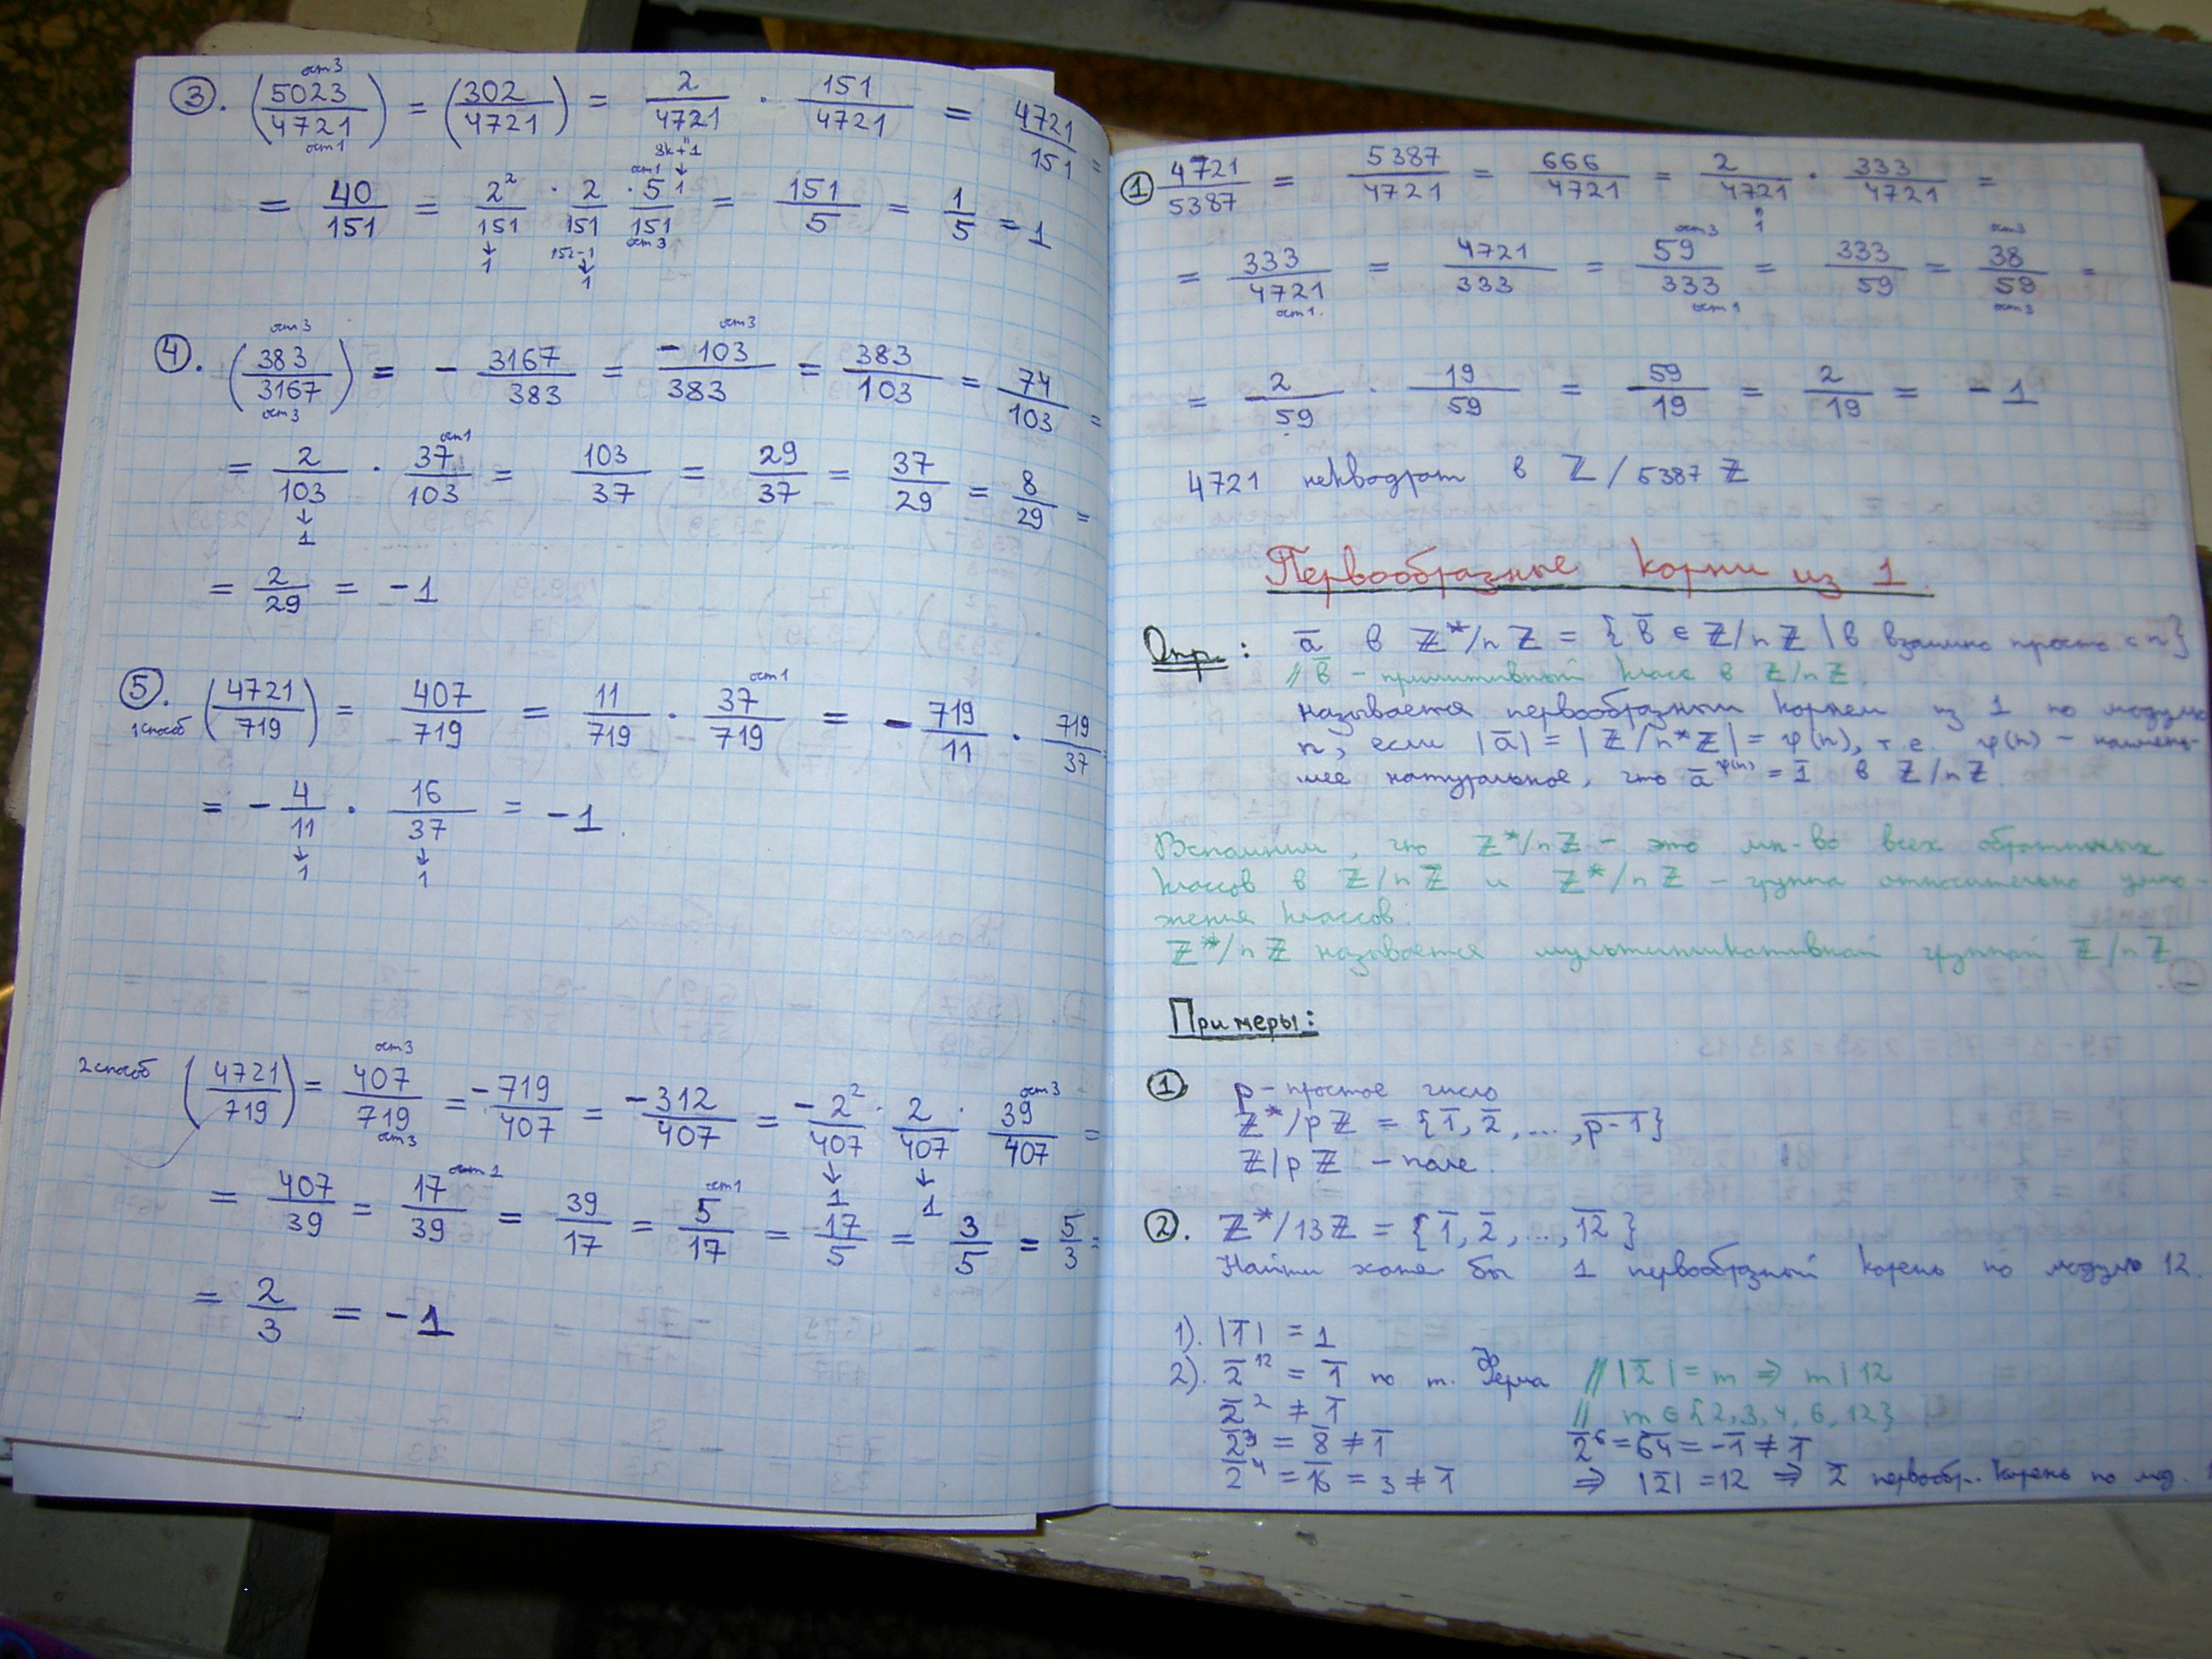 ③. (5023/4721) = (302/4721) = 2/4721 · 151/4721 = 4721/151 =
= 40/151 = 2²/151 · 2/151 · 5/151 = 151/5 = 1/5 = 1
④. (383/3167) = - 3167/383 = - 103/383 = 383/103 = 74/103 =
= 2/103 · 37/103 = 103/37 = 29/37 = 37/29 = 8/29 =
= 2/29 = -1
⑤. 1 способ (4721/719) = 407/719 = 11/719 · 37/719 = - 719/11 · 719/37
= - 4/11 · 16/37 = -1.
2 способ (4721/719) = 407/719 = - 719/407 = - 312/407 = - 2²/407 · 2/407 · 39/407 =
= 407/39 = 17/39 = 39/17 = 5/17 = 17/5 = 3/5 = 5/3 =
= 2/3 = -1
① 4721/5387 = 5387/4721 = 666/4721 = 2/4721 · 333/4721 =
= 333/4721 = 4721/333 = 59/333 = 333/59 = 38/59 =
= 2/59 · 19/59 = 59/19 = 2/19 = -1
4721 неквадрат в ℤ/5387ℤ
Первообразные корни из 1.
Опр.: a̅ в ℤ*/nℤ = {b̅ ∈ ℤ/nℤ | b взаимно просто с n}
// b̅ - примитивный класс в ℤ/nℤ.
называется первообразным корнем из 1 по модулю
n, если |a̅| = |ℤ/n*ℤ| = φ(n), т.е. φ(n) - наимень-
шее натуральное, что a̅^φ(n) = 1̅ в ℤ/nℤ.
Вспомним, что ℤ*/nℤ - это мн-во всех обратимых
классов в ℤ/nℤ и ℤ*/nℤ - группа относительно умно-
жения классов.
ℤ*/nℤ называется мультипликативной группой ℤ/nℤ
Примеры:
① p - простое число
ℤ*/pℤ = {1̅, 2̅, ..., p-1}
ℤ/pℤ - поле.
②. ℤ*/13ℤ = {1̅, 2̅, ..., 12}
Найти хотя бы 1 первообразный корень по модулю 12.
1). |1̅| = 1
2). 2̅¹² = 1̅ по т. Ферма // |2̅| = m ⇒ m | 12
2̅² ≠ 1̅ // m ∈ {2, 3, 4, 6, 12}
2̅³ = 8̅ ≠ 1̅ 2̅⁶ = 64 = -1̅ ≠ 1̅
2̅⁴ = 16 = 3 ≠ 1̅ ⇒ |2̅| = 12 ⇒ 2̅ первообр. корень по мод.